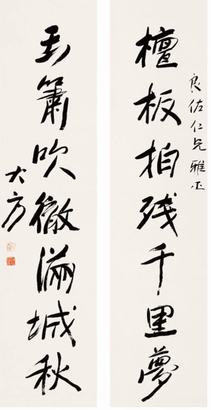 檀板拍残千里夢
良佐仁兄雅正
玉簫吹徹滿城秋
大方